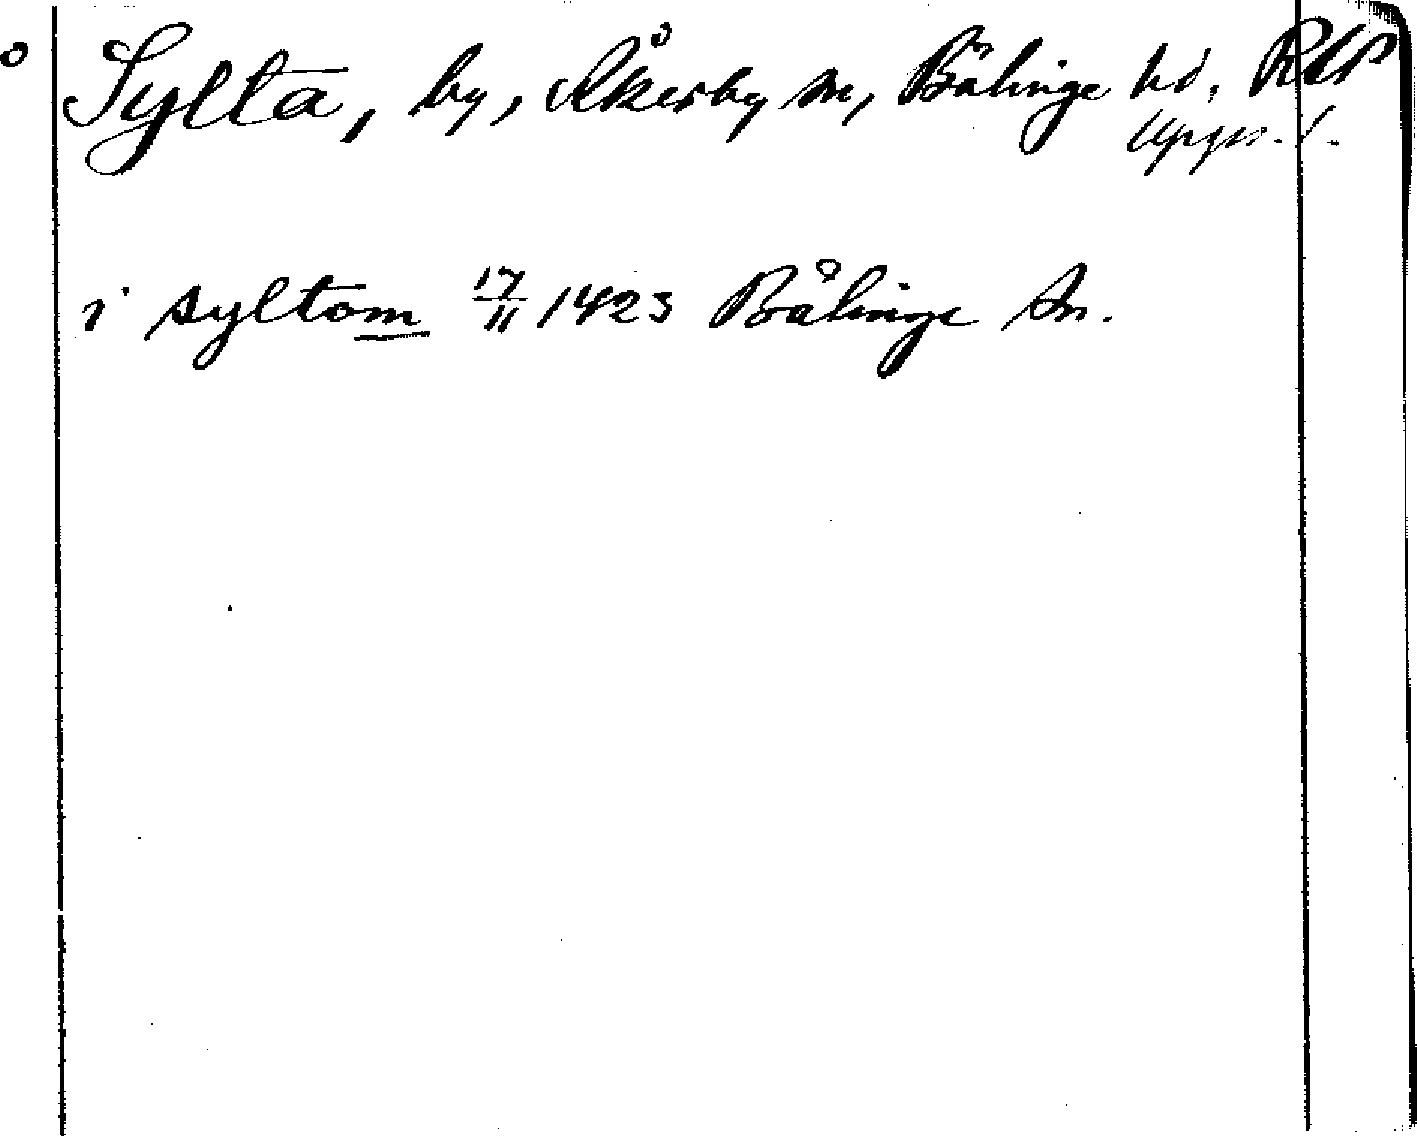 Sylta, by, Åkerby sn, Bälinge hd,
i syltom 17/11 1423 Bålinge sn.